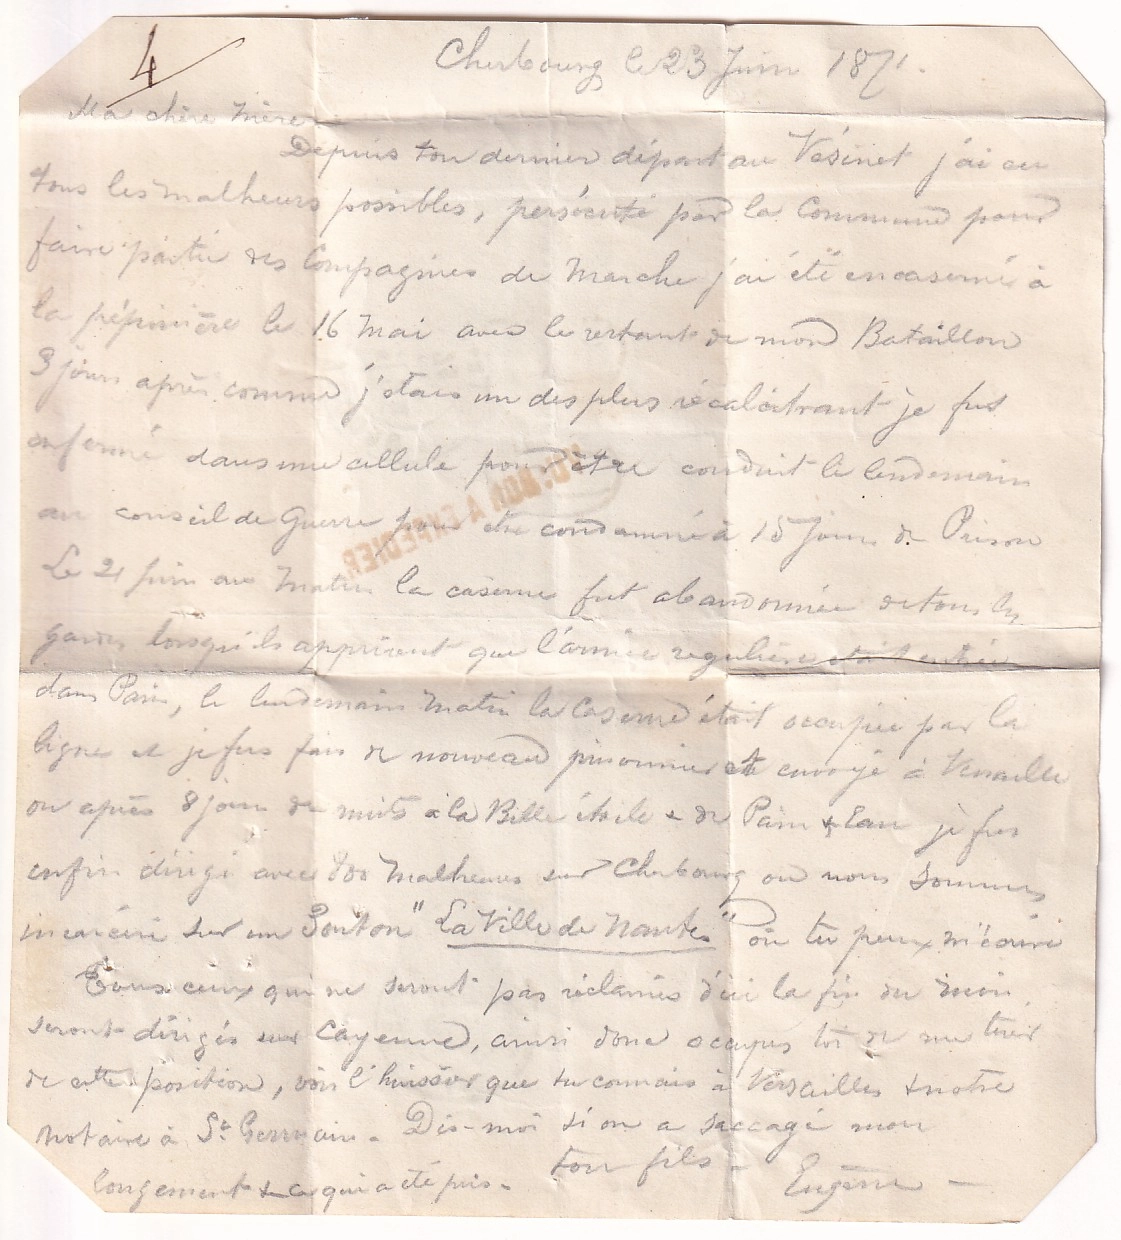 4
Cherbourg le 23 Juin 1871.
Ma chère Mère
Depuis ton dernier départ au Vésinet j'ai eu
tous les malheurs possibles, persécuté par la Commune pour
faire partie des Compagnies de Marche j'ai été encaserné à
la pépinière le 16 Mai avec le restant de mon Bataillon
3 jours après comme j'étais un des plus récalcitrant je fus
enfermé dans une cellule pour être conduit le lendemain
au conseil de Guerre pour être condamné à 15 jours de Prison
Le 21 juin au Matin la caserne fut abandonnée de tous les
gardes lorsqu'ils apprirent que l'armée regulière était entrée
dans Paris, le lendemain Matin la Caserne était occupée par la
ligne et je fus fais de nouveau prisonnier et envoyé à Versaille
ou après 8 jours de nuits à la Belle étoile & de Pain & Eau je fus
enfin dirigé avec 800 Malheureux sur Cherbourg ou nous sommes
incarcéré sur un Ponton "La Ville de Nantes" où tu peux m'écrire
Tous ceux qui ne seront pas réclamés d'ici la fin du mois
seront dirigés sur Cayenne, ainsi donc occupes toi de me tirer
de cette position, vois l'huissier que tu connais à Versailles & notre
notaire à St Germain. Dis-moi si on a saccagé mon
longement & ce qui a été pris.
ton fils -
Eugène -
P.D. BON A EXPEDIER